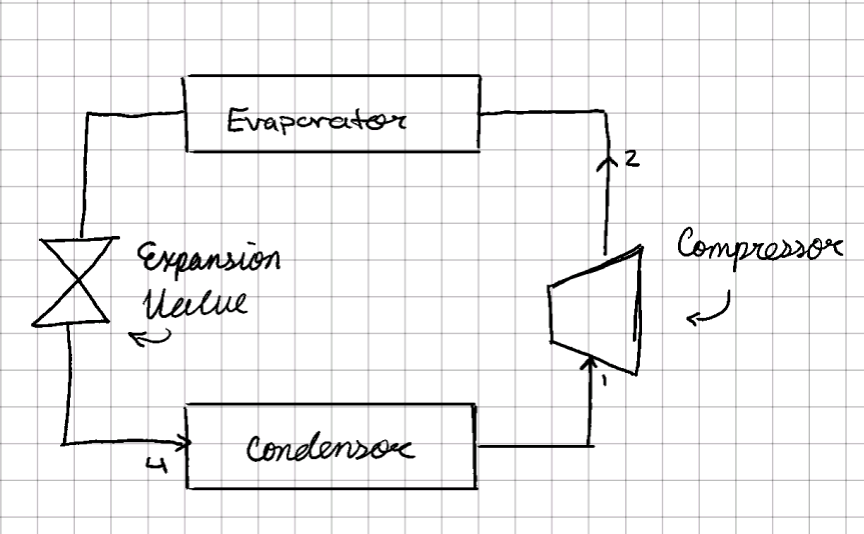 Evaporator
2
Expansion
Valve
Compressor
1
Condensor
4